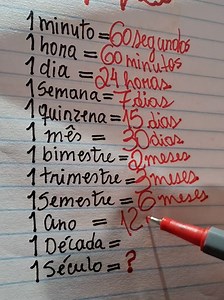 1 minuto = 60 segundos
1 hora = 60 minutos
1 dia = 24 horas
1 semana = 7 dias
1 quinzena = 15 dias
1 mês = 30 dias
1 bimestre = 2 meses
1 trimestre = 3 meses
1 Semestre = 6 meses
1 ano = 12
1 Década =
1 Século = ?